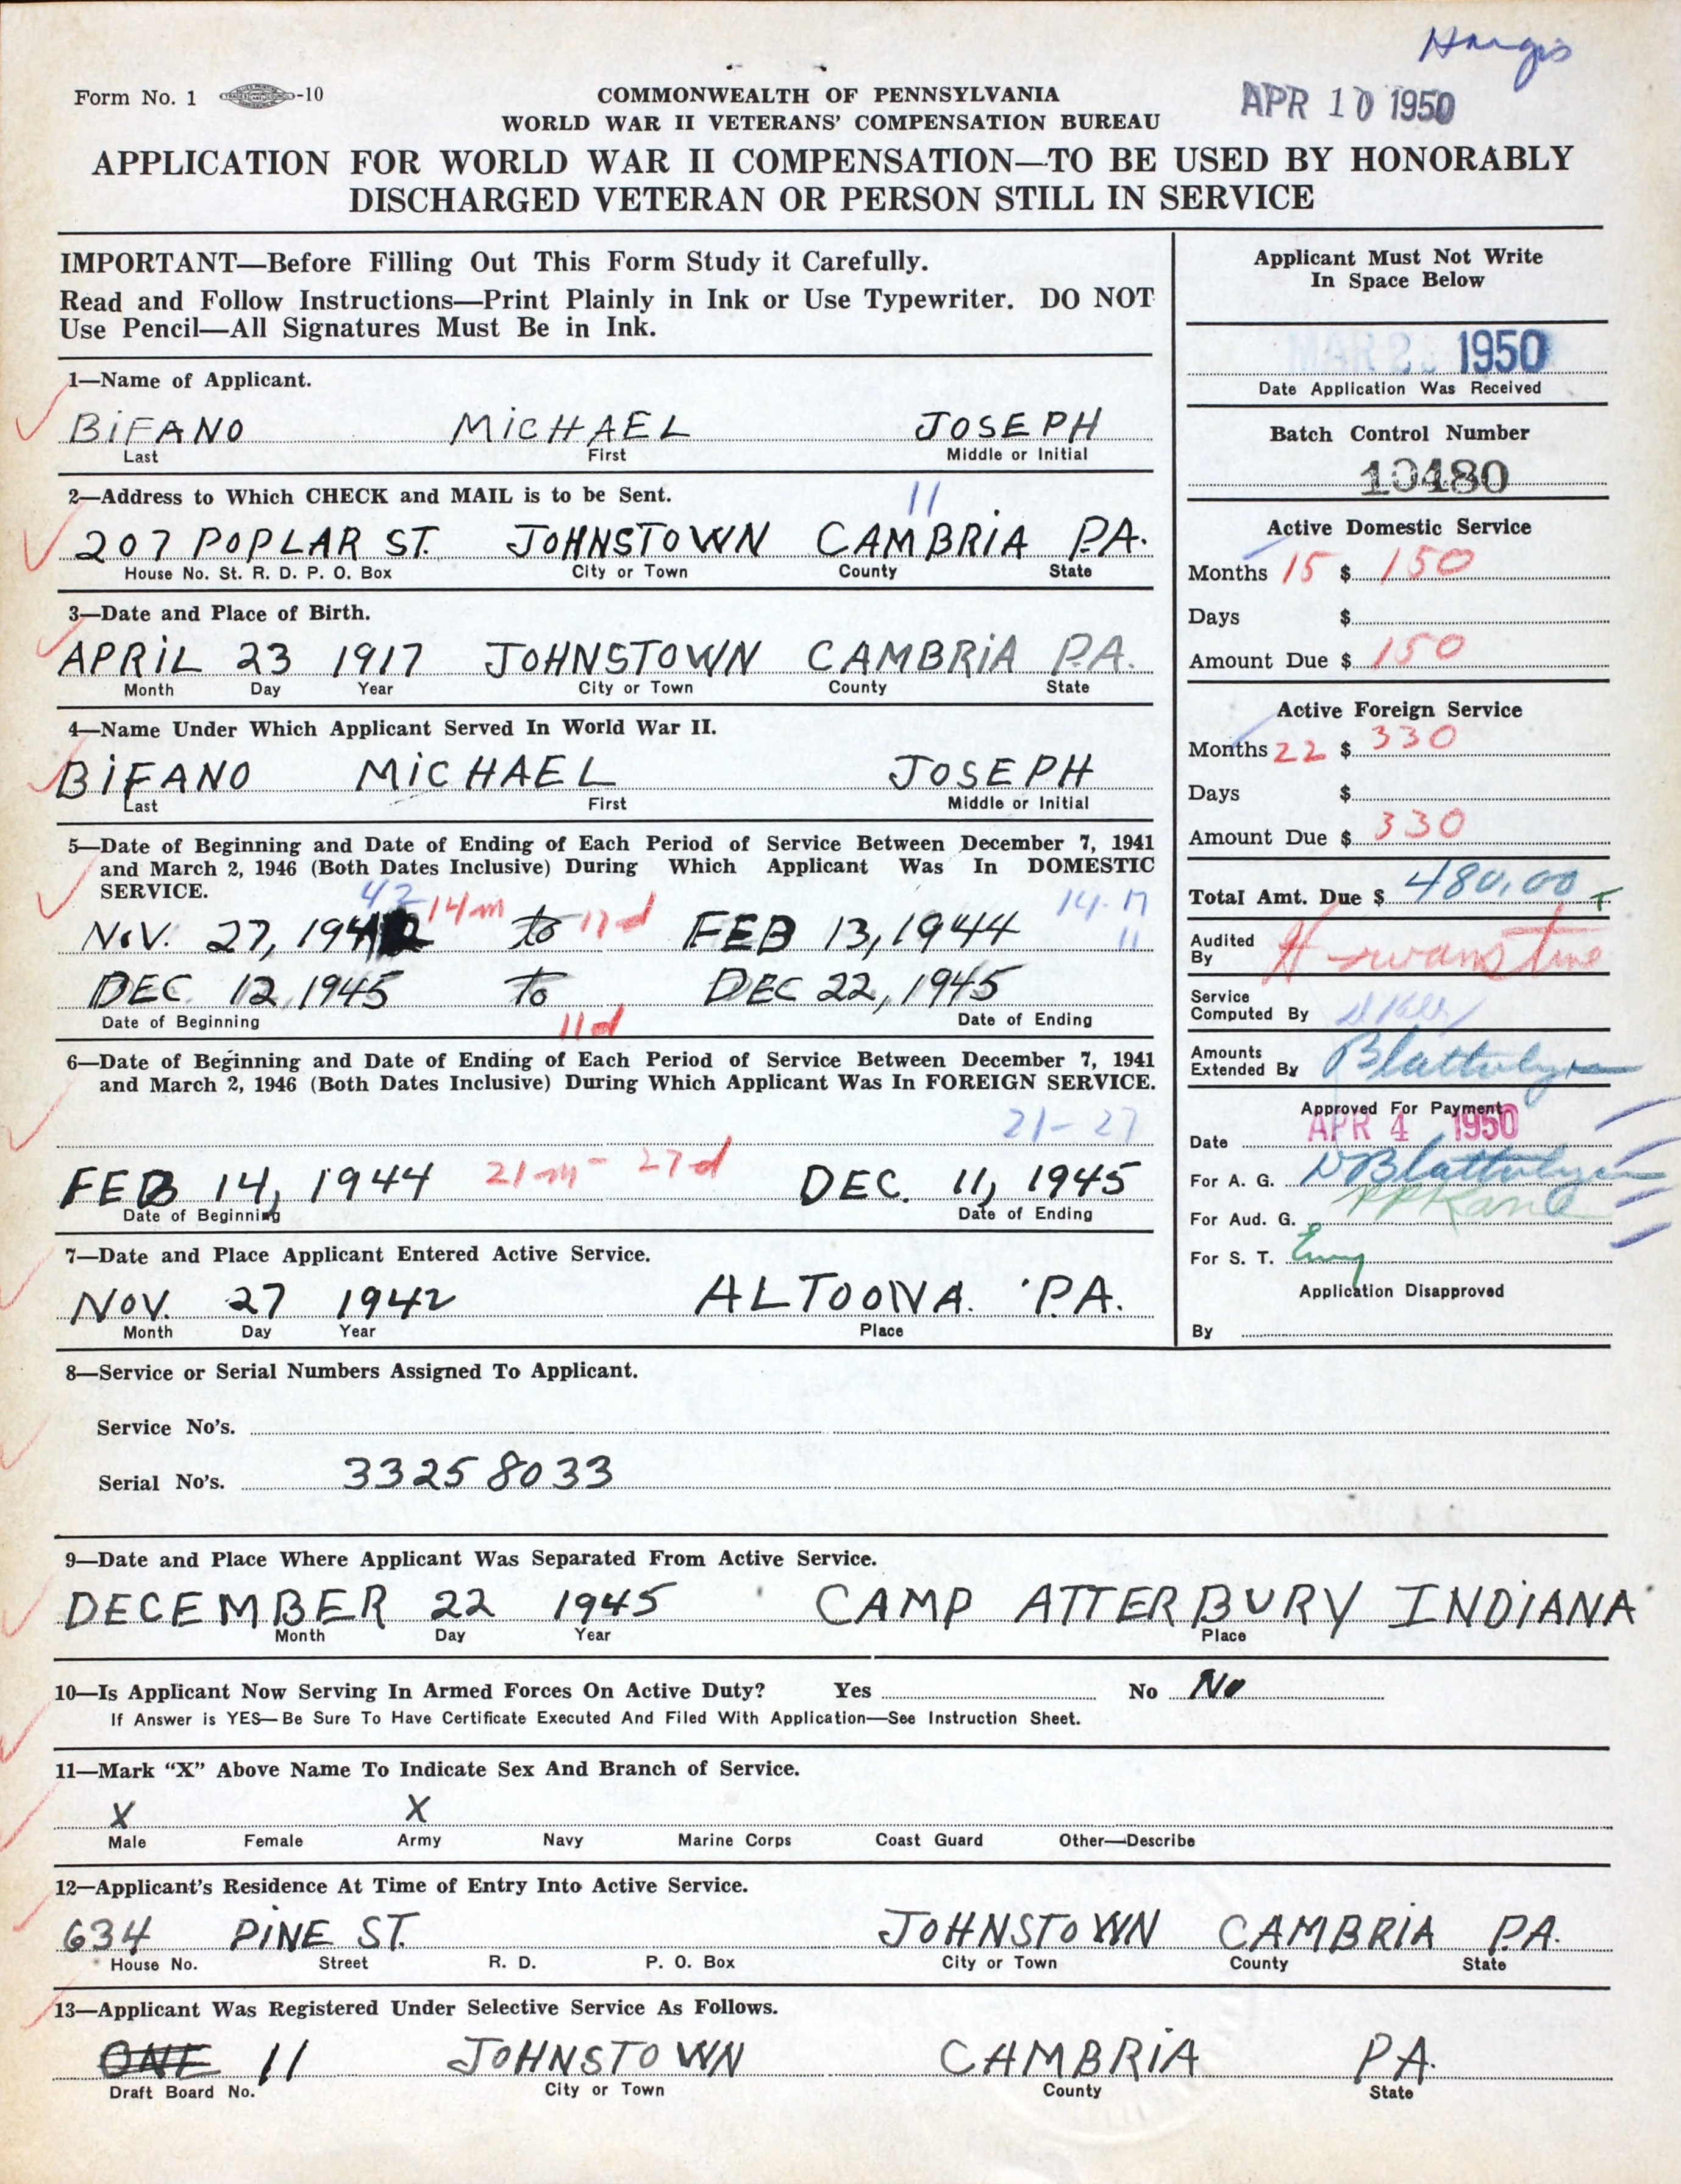 Hargis
Form No. 1 -10
COMMONWEALTH OF PENNSYLVANIA
APR 10 1950
WORLD WAR II VETERANS' COMPENSATION BUREAU
APPLICATION FOR WORLD WAR II COMPENSATION—TO BE USED BY HONORABLY
DISCHARGED VETERAN OR PERSON STILL IN SERVICE
IMPORTANT—Before Filling Out This Form Study it Carefully.
Read and Follow Instructions—Print Plainly in Ink or Use Typewriter. DO NOT
Use Pencil—All Signatures Must Be in Ink.
1—Name of Applicant.
BIFANO MICHAEL JOSEPH
Last First Middle or Initial
2—Address to Which CHECK and MAIL is to be Sent.
11
207 POPLAR ST. JOHNSTOWN CAMBRIA PA.
House No. St. R. D. P. O. Box City or Town County State
3—Date and Place of Birth.
APRIL 23 1917 JOHNSTOWN CAMBRIA PA.
Month Day Year City or Town County State
4—Name Under Which Applicant Served In World War II.
BIFANO MICHAEL JOSEPH
Last First Middle or Initial
5—Date of Beginning and Date of Ending of Each Period of Service Between December 7, 1941
and March 2, 1946 (Both Dates Inclusive) During Which Applicant Was In DOMESTIC
SERVICE.
42 14m 17d 14-17
NOV. 27, 1942 to FEB 13, 1944 11
DEC 12, 1945 to DEC 22, 1945
Date of Beginning 11d Date of Ending
6—Date of Beginning and Date of Ending of Each Period of Service Between December 7, 1941
and March 2, 1946 (Both Dates Inclusive) During Which Applicant Was In FOREIGN SERVICE.
21-27
FEB 14, 1944 21m- 27d DEC. 11, 1945
Date of Beginning Date of Ending
7—Date and Place Applicant Entered Active Service.
NOV. 27 1942 ALTOONA. PA.
Month Day Year Place
Applicant Must Not Write
In Space Below
1950
Date Application Was Received
Batch Control Number
10480
Active Domestic Service
Months 15 $ 150
Days $
Amount Due $ 150
Active Foreign Service
Months 22 $ 330
Days $
Amount Due $ 330
Total Amt. Due $ 480.00
Audited
By
Service
Computed By
Amounts
Extended By
Approved For Payment
Date APR 4 1950
For A. G.
For Aud. G.
For S. T.
Application Disapproved
By
8—Service or Serial Numbers Assigned To Applicant.
Service No's.
Serial No's. 33258033
9—Date and Place Where Applicant Was Separated From Active Service.
DECEMBER 22 1945 CAMP ATTERBURY INDIANA
Month Day Year Place
10—Is Applicant Now Serving In Armed Forces On Active Duty? Yes No No
If Answer is YES—Be Sure To Have Certificate Executed And Filed With Application—See Instruction Sheet.
11—Mark “X” Above Name To Indicate Sex And Branch of Service.
X X
Male Female Army Navy Marine Corps Coast Guard Other—Describe
12—Applicant's Residence At Time of Entry Into Active Service.
634 PINE ST. JOHNSTOWN CAMBRIA PA.
House No. Street R. D. P. O. Box City or Town County State
13—Applicant Was Registered Under Selective Service As Follows.
ONE 11 JOHNSTOWN CAMBRIA PA.
Draft Board No. City or Town County State